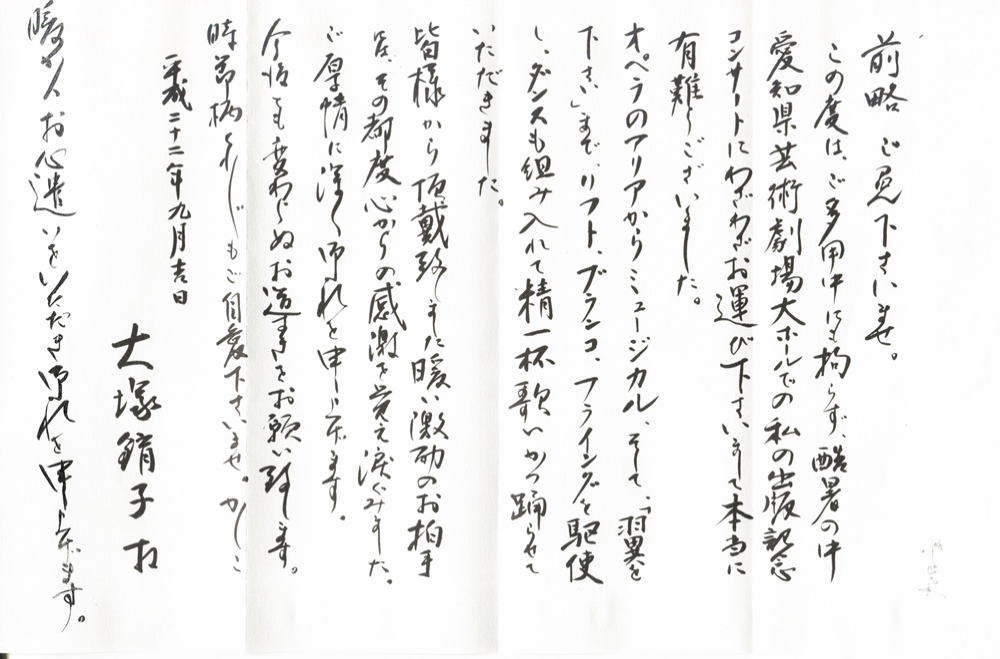 前略 ご免下さいませ。
この度は、ご多用中にも拘らず、酷暑の中
愛知県芸術劇場大ホールでの私の出版記念
コンサートにわざわざお運び下さいまして本当に
有難うございました。
オペラのアリアからミュージカル、そして、「翼を
下さい」まで、リフト、ブランコ、フライングを駆使
し、ダンスも組み入れて精一杯歌いかつ踊らせて
いただきました。
皆様から頂戴致しました暖い激励のお拍手
は、その都度心からの感激を覚え涙ぐみました。
ご厚情に深く御礼を申し上げます。
今後とも変わらぬお導きをお願い致します。
時節柄くれぐれもご自愛下さいませ。かしこ
平成二十二年九月吉日
大塚絹子
暖かいお心遣いをいただき御礼を申し上げます。